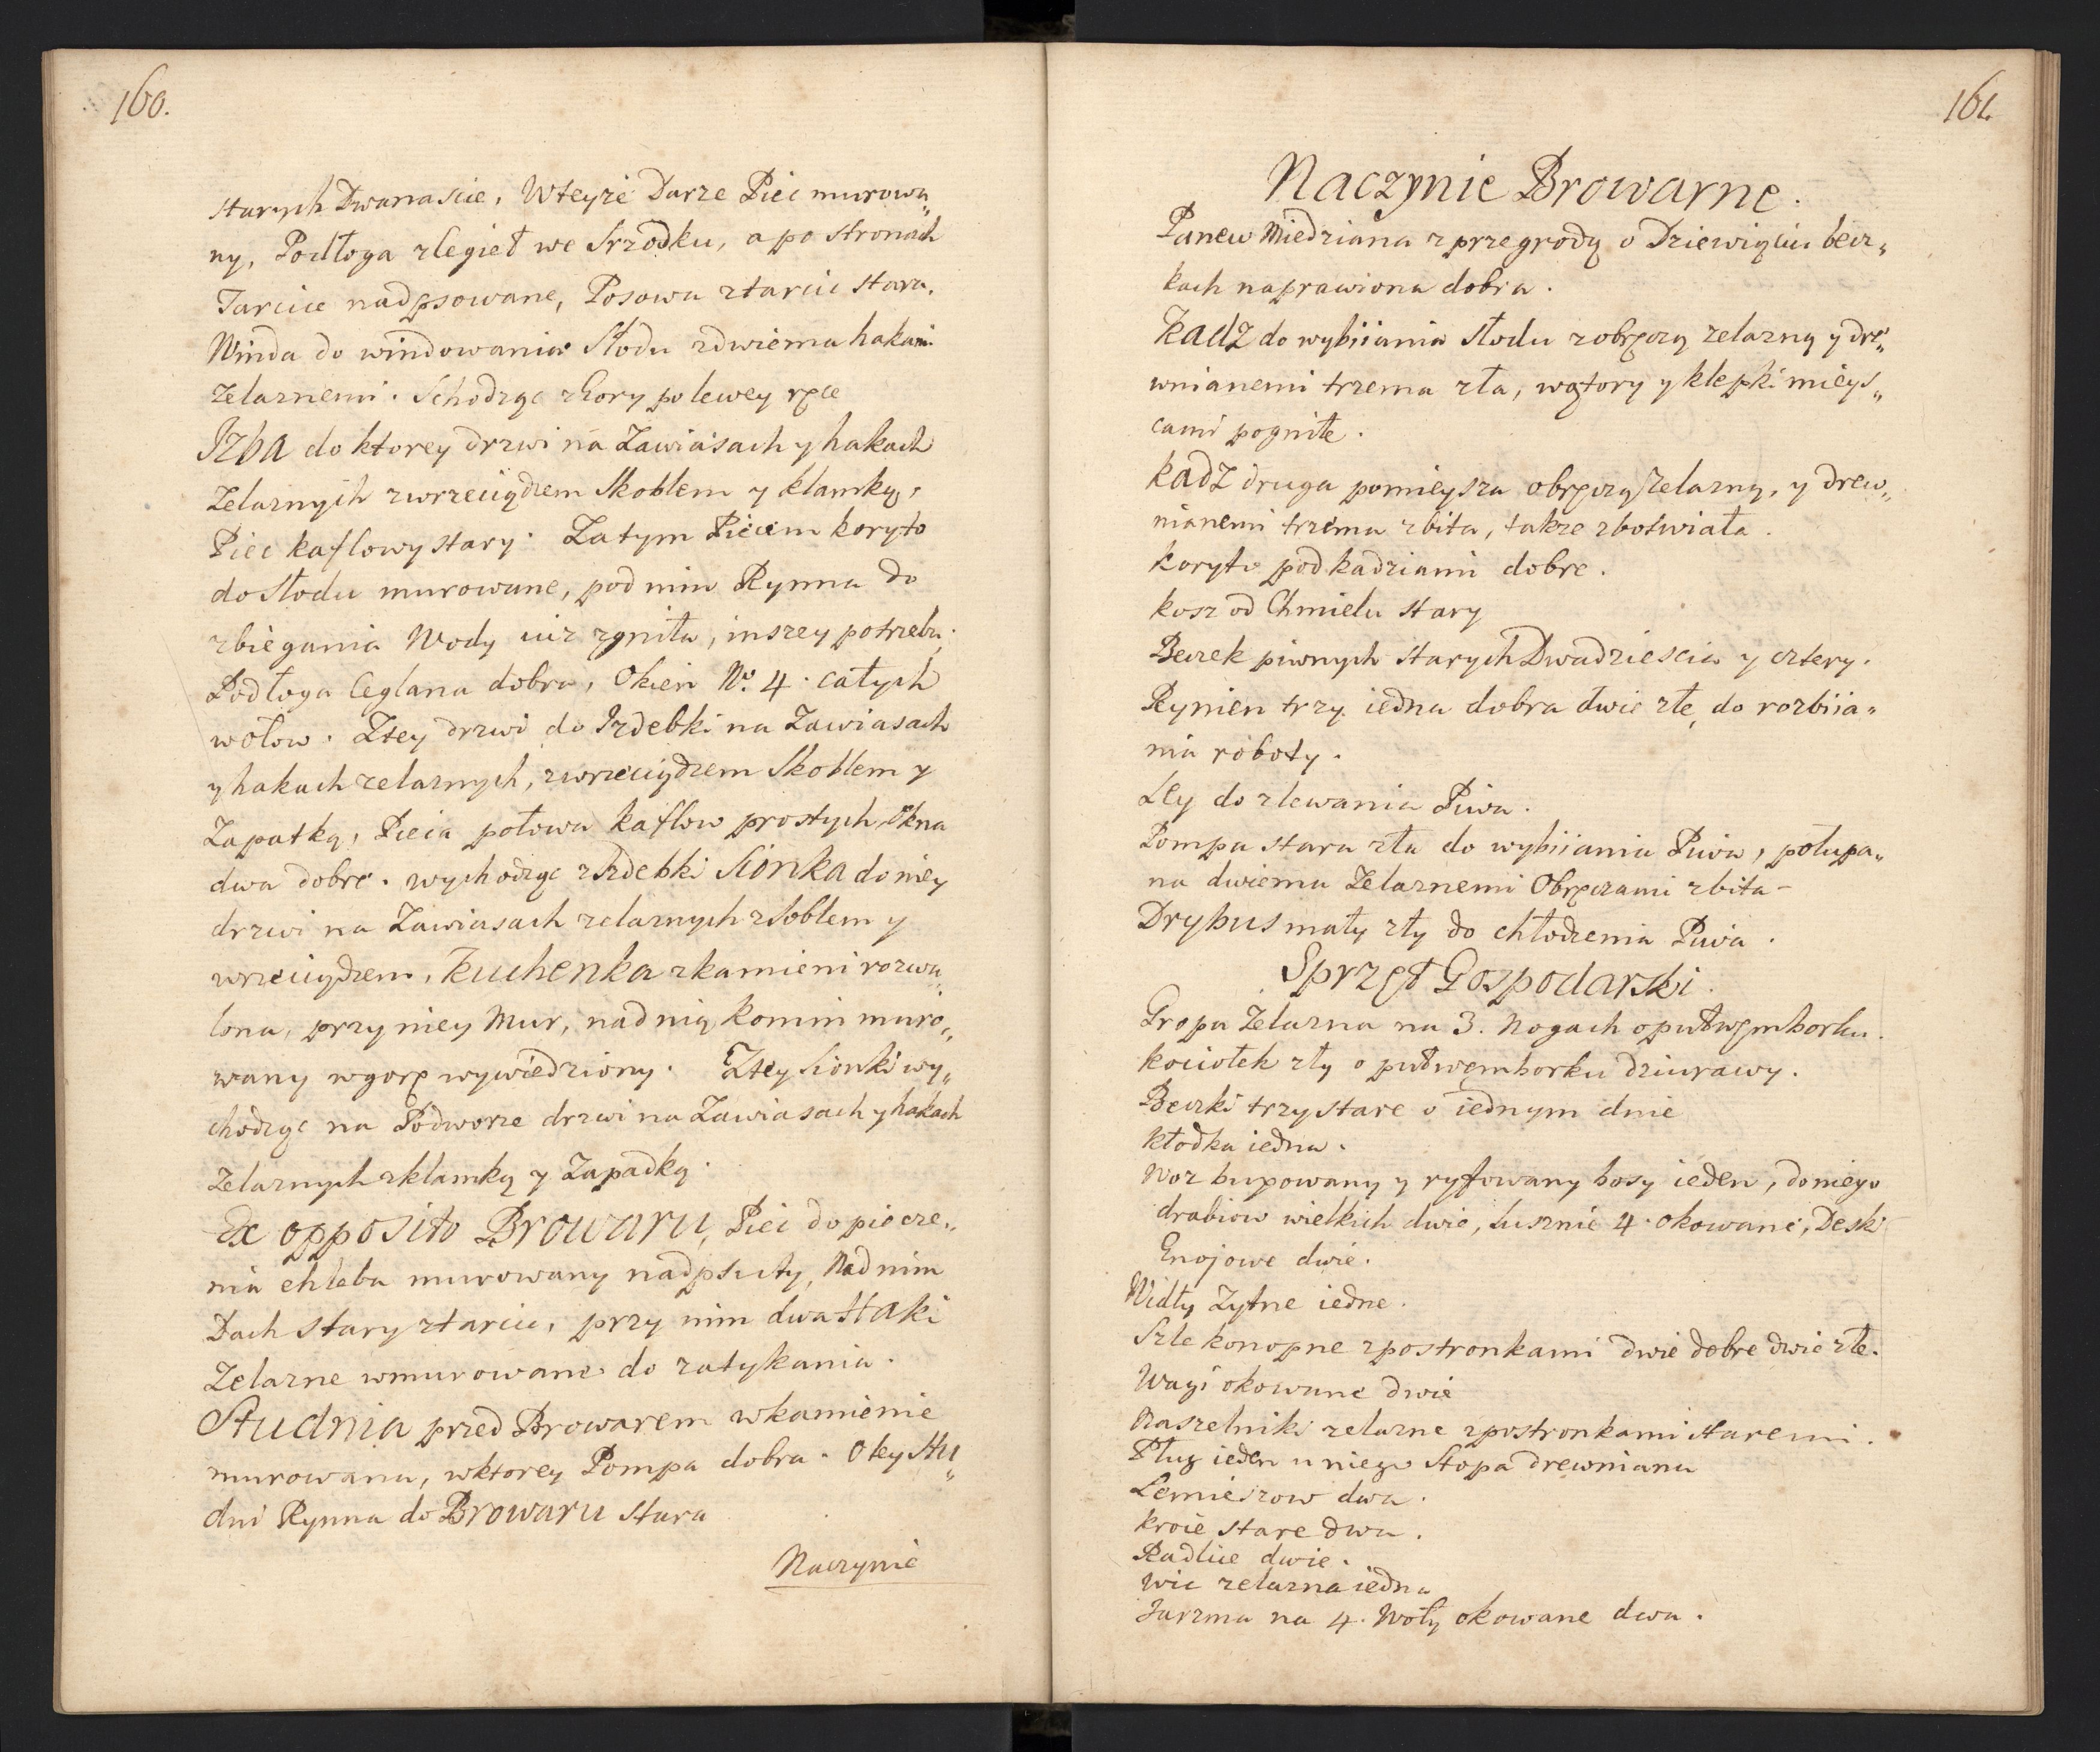 160.
starych Dwanascie, Wteyże Darze Piec murowa„
ny, Podłoga zlegieł we Srzodku, a po stronach
Tarcice nadpsowane, Posowa ztarcic stara,
Winda do windowania Słodu zdwiema hakami
Zelaznemi. Schodząc zGory po lewey ręce
Izba do ktorey drzwi na Zawiasach y hakach
Zelaznych zwrzeciądzem Skoblem y klamką,
Piec kaflowy stary. Zatym Piecem koryto
do Słodu murowane, pod nim Rynna do
zbiegania Wody iuż zgniła, inszey potrzeba,
Podłoga Ceglana dobra, Okien No. 4. całych
wołow. Ztey drzwi do Izdebki na Zawiasach
y hakach zelaznych, zwrzeciądzem Skoblem y
Zapatką, Pieca połowa kaflow prostych, Okna
dwa dobre. wychodząc zIzdebki Sionka do niey
drzwi na Zawiasach zelaznych zSoblem y
wrzeciądzem, Kuchenka zkamieni rozwa„
lona, przy niey Mur, nad nią komin muro„
wany wgorę wywiedziony. Ztey Sionki wy„
chodząc na Podworze drzwi na Zawiasach y hakach
Zelaznych zklamką y Zapadką.
Ex opposito Browaru, Piec do piecze„
nia chleba murowany nadpsuty, Nad nim
Dach stary ztarcic, przy nim dwa Haki
Zelazne wmurowane do zatykania.
Studnia przed Browarem wkamienie
murowana, wktorey Pompa dobra. Otey Stu„
dni Rynna do Browaru stara
Naczynie
161.
Naczynie Browarne.
Panew Miedziana z przegrodą o Dziewiąciu becz„
kach naprawiona dobra.
Kadz do wybiiania Słodu zobręczą zelazną y dre„
wnianemi trzema zła, wątory y klepki mieys„
cami pogniłe.
kadz druga pomieysza obręczą Zelazną, y drew„
nianemi trzema zbita, także zbotwiała.
koryto pod kadziami dobre.
kosz od Chmielu stary
Beczek piwnych starych Dwadziescia y cztery.
Rynien trzy iedna dobra dwie złe, do rozbiia„
nia roboty.
Ley do zlewania Piwa.
Pompa stara zła do wybiiania Piwa, połupa„
na dwiema Zelaznemi Obręczami zbita -
Drybus mały zły do chłodzenia Piwa.
Sprzęt Gospodarski.
Gropa Zelazna na 3. Nogach opułwęmborku.
kociołek zły o pułwęmborku dziurawy.
Beczki trzy stare o iednym dnie
kłodka iedna.
Woz buxowany y ryfowany bosy ieden, do niego
drabiow wielkich dwie, Lusznie 4. okowane, Deski
Gnojowe dwie.
Widły Zytne iedne.
Szle konopne zpostronkami dwie dobre dwie złe.
Wagi okowane dwie
Naszelniki zelazne zpostronkami staremi.
Pług ieden u niego Stopa drewniana
Lemieszow dwa.
kroie stare dwa.
Radlice dwie.
Wic zelazna iedna
Jarzma na 4. Woły okowane dwa.